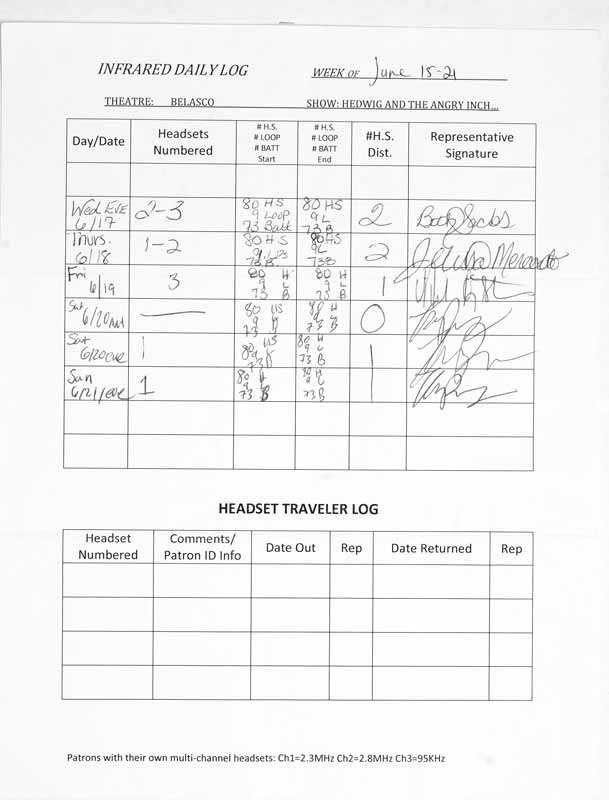 INFRARED DAILY LOG
WEEK OF June 15-21
THEATRE: BELASCO
SHOW: HEDWIG AND THE ANGRY INCH...
Day/Date
Headsets
Numbered
# H.S.
# LOOP
# BATT
Start
# H.S.
# LOOP
# BATT
End
#H.S.
Dist.
Representative
Signature
Wed EVE
6/17
2-3
80 HS
9 LOOP
73 Batt
80 HS
9 L
73 B
2
Thurs.
6/18
1-2
80 H.S
9 LPS
73 B.
80 HS
9L
73B
2
Fri
6/19
3
80 H
9 L
73 B
80 H
9 L
73 B
1
Sat
6/20
80
9
73
80 H
9 L
73 B
0
Sat
6/20 eve
1
80
9
73
80 H
9 L
73 B
1
Sun
6/21/eve
1
80 H
9 L
73 B
80 H
9 L
73 B
1
HEADSET TRAVELER LOG
Headset
Numbered
Comments/
Patron ID Info
Date Out
Rep
Date Returned
Rep
Patrons with their own multi-channel headsets: Ch1=2.3MHz Ch2=2.8MHz Ch3=95KHz